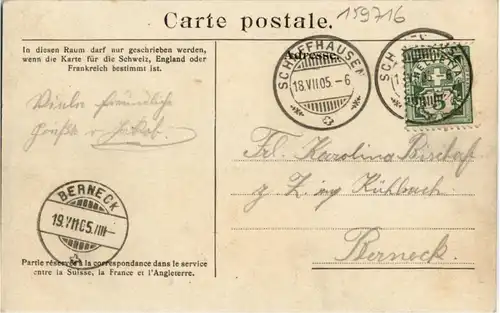 Carte postale.
159716
In diesen Raum darf nur geschrieben werden,
wenn die Karte für die Schweiz, England oder
Frankreich bestimmt ist.
Adresse.
SCHAFFHAUSEN
18.VII.05.-6
5
Viele freundliche
Grüße v. Jakob.
Frl. Karolina Bischof
z. Kühlbach.
Berneck.
BERNECK
19.VII.05./III
Partie réservée à la correspondance dans le service
entre la Suisse, la France et l'Angleterre.